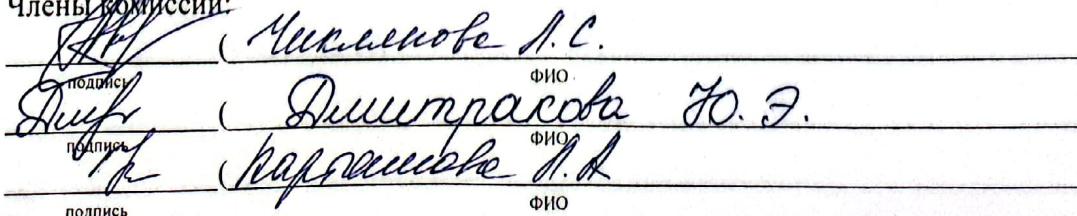 Члены комиссии:
( Чиклянова Л. С.
подпись ФИО
( Дмитракова Ю. Э.
подпись ФИО
( Карташова Л. А
подпись ФИО